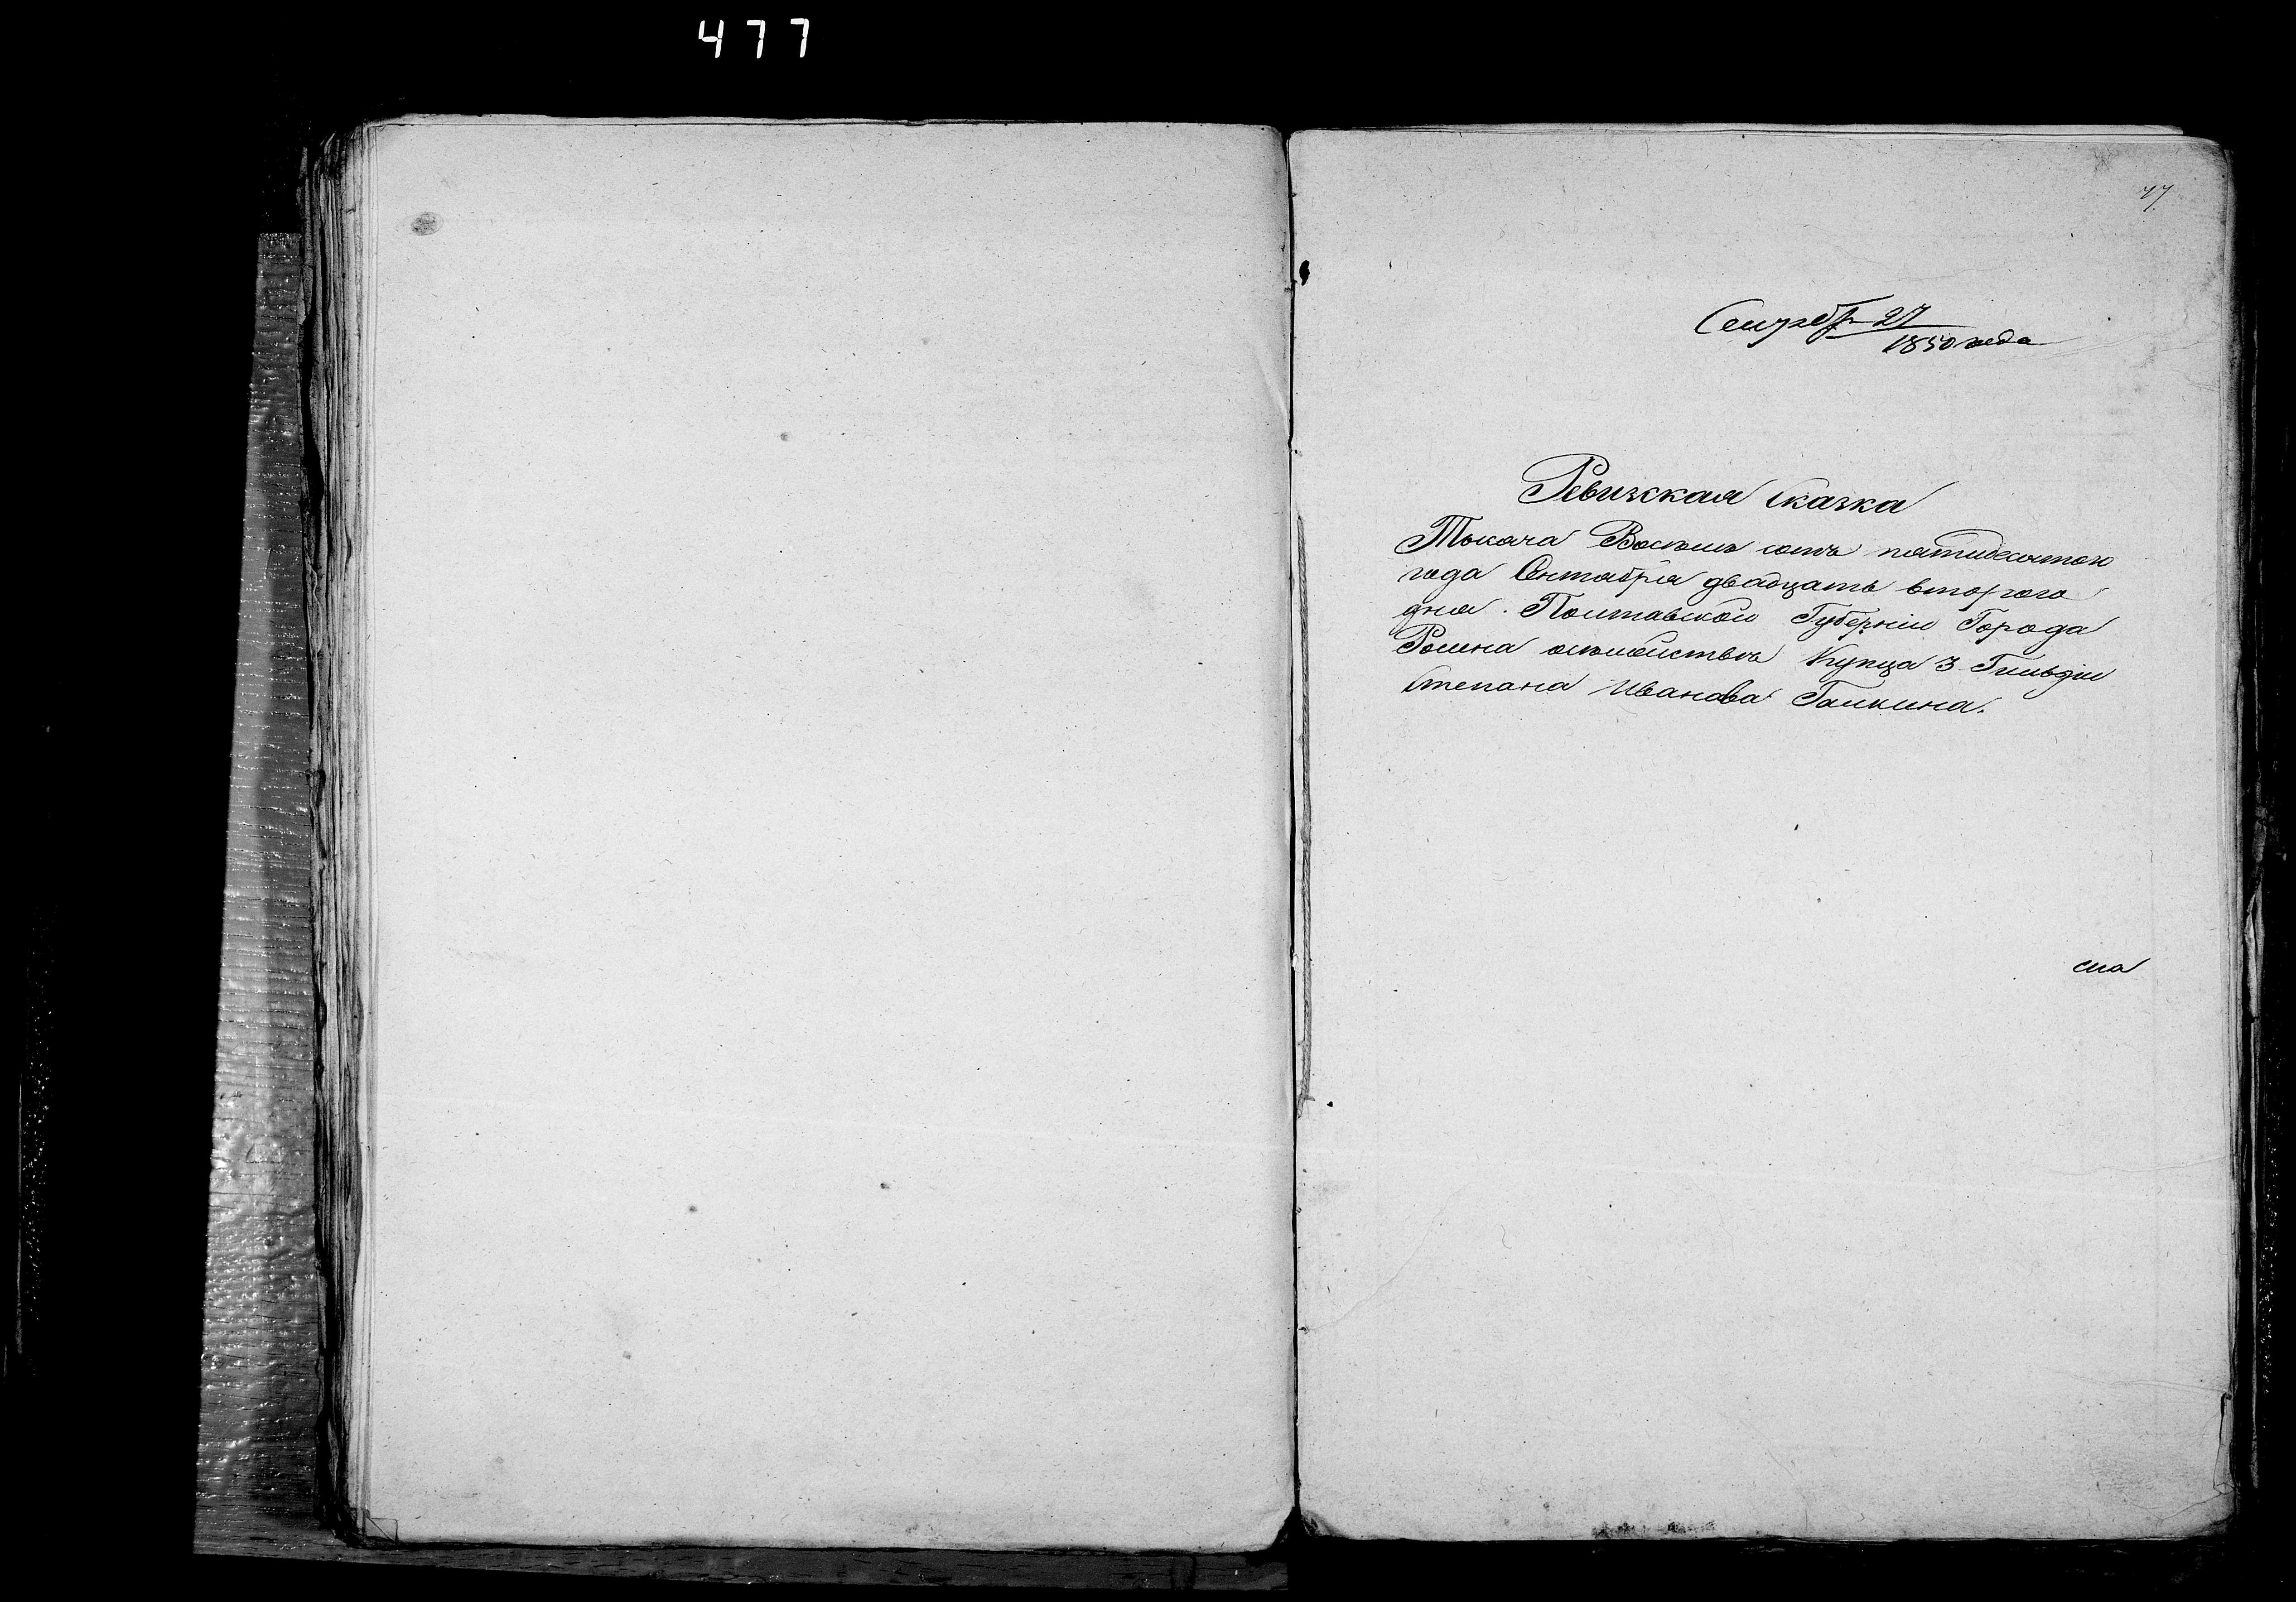 477
77
Сентября 27
1850 года
Ревизская Сказка
Тысяча Восемь сотъ пятидесятого
года Сентября двадцать второго
дня. Полтавской Губерніи Города
Ромна осемействѣ Купца 3 Гильдіи
Степана Иванова Галкина.